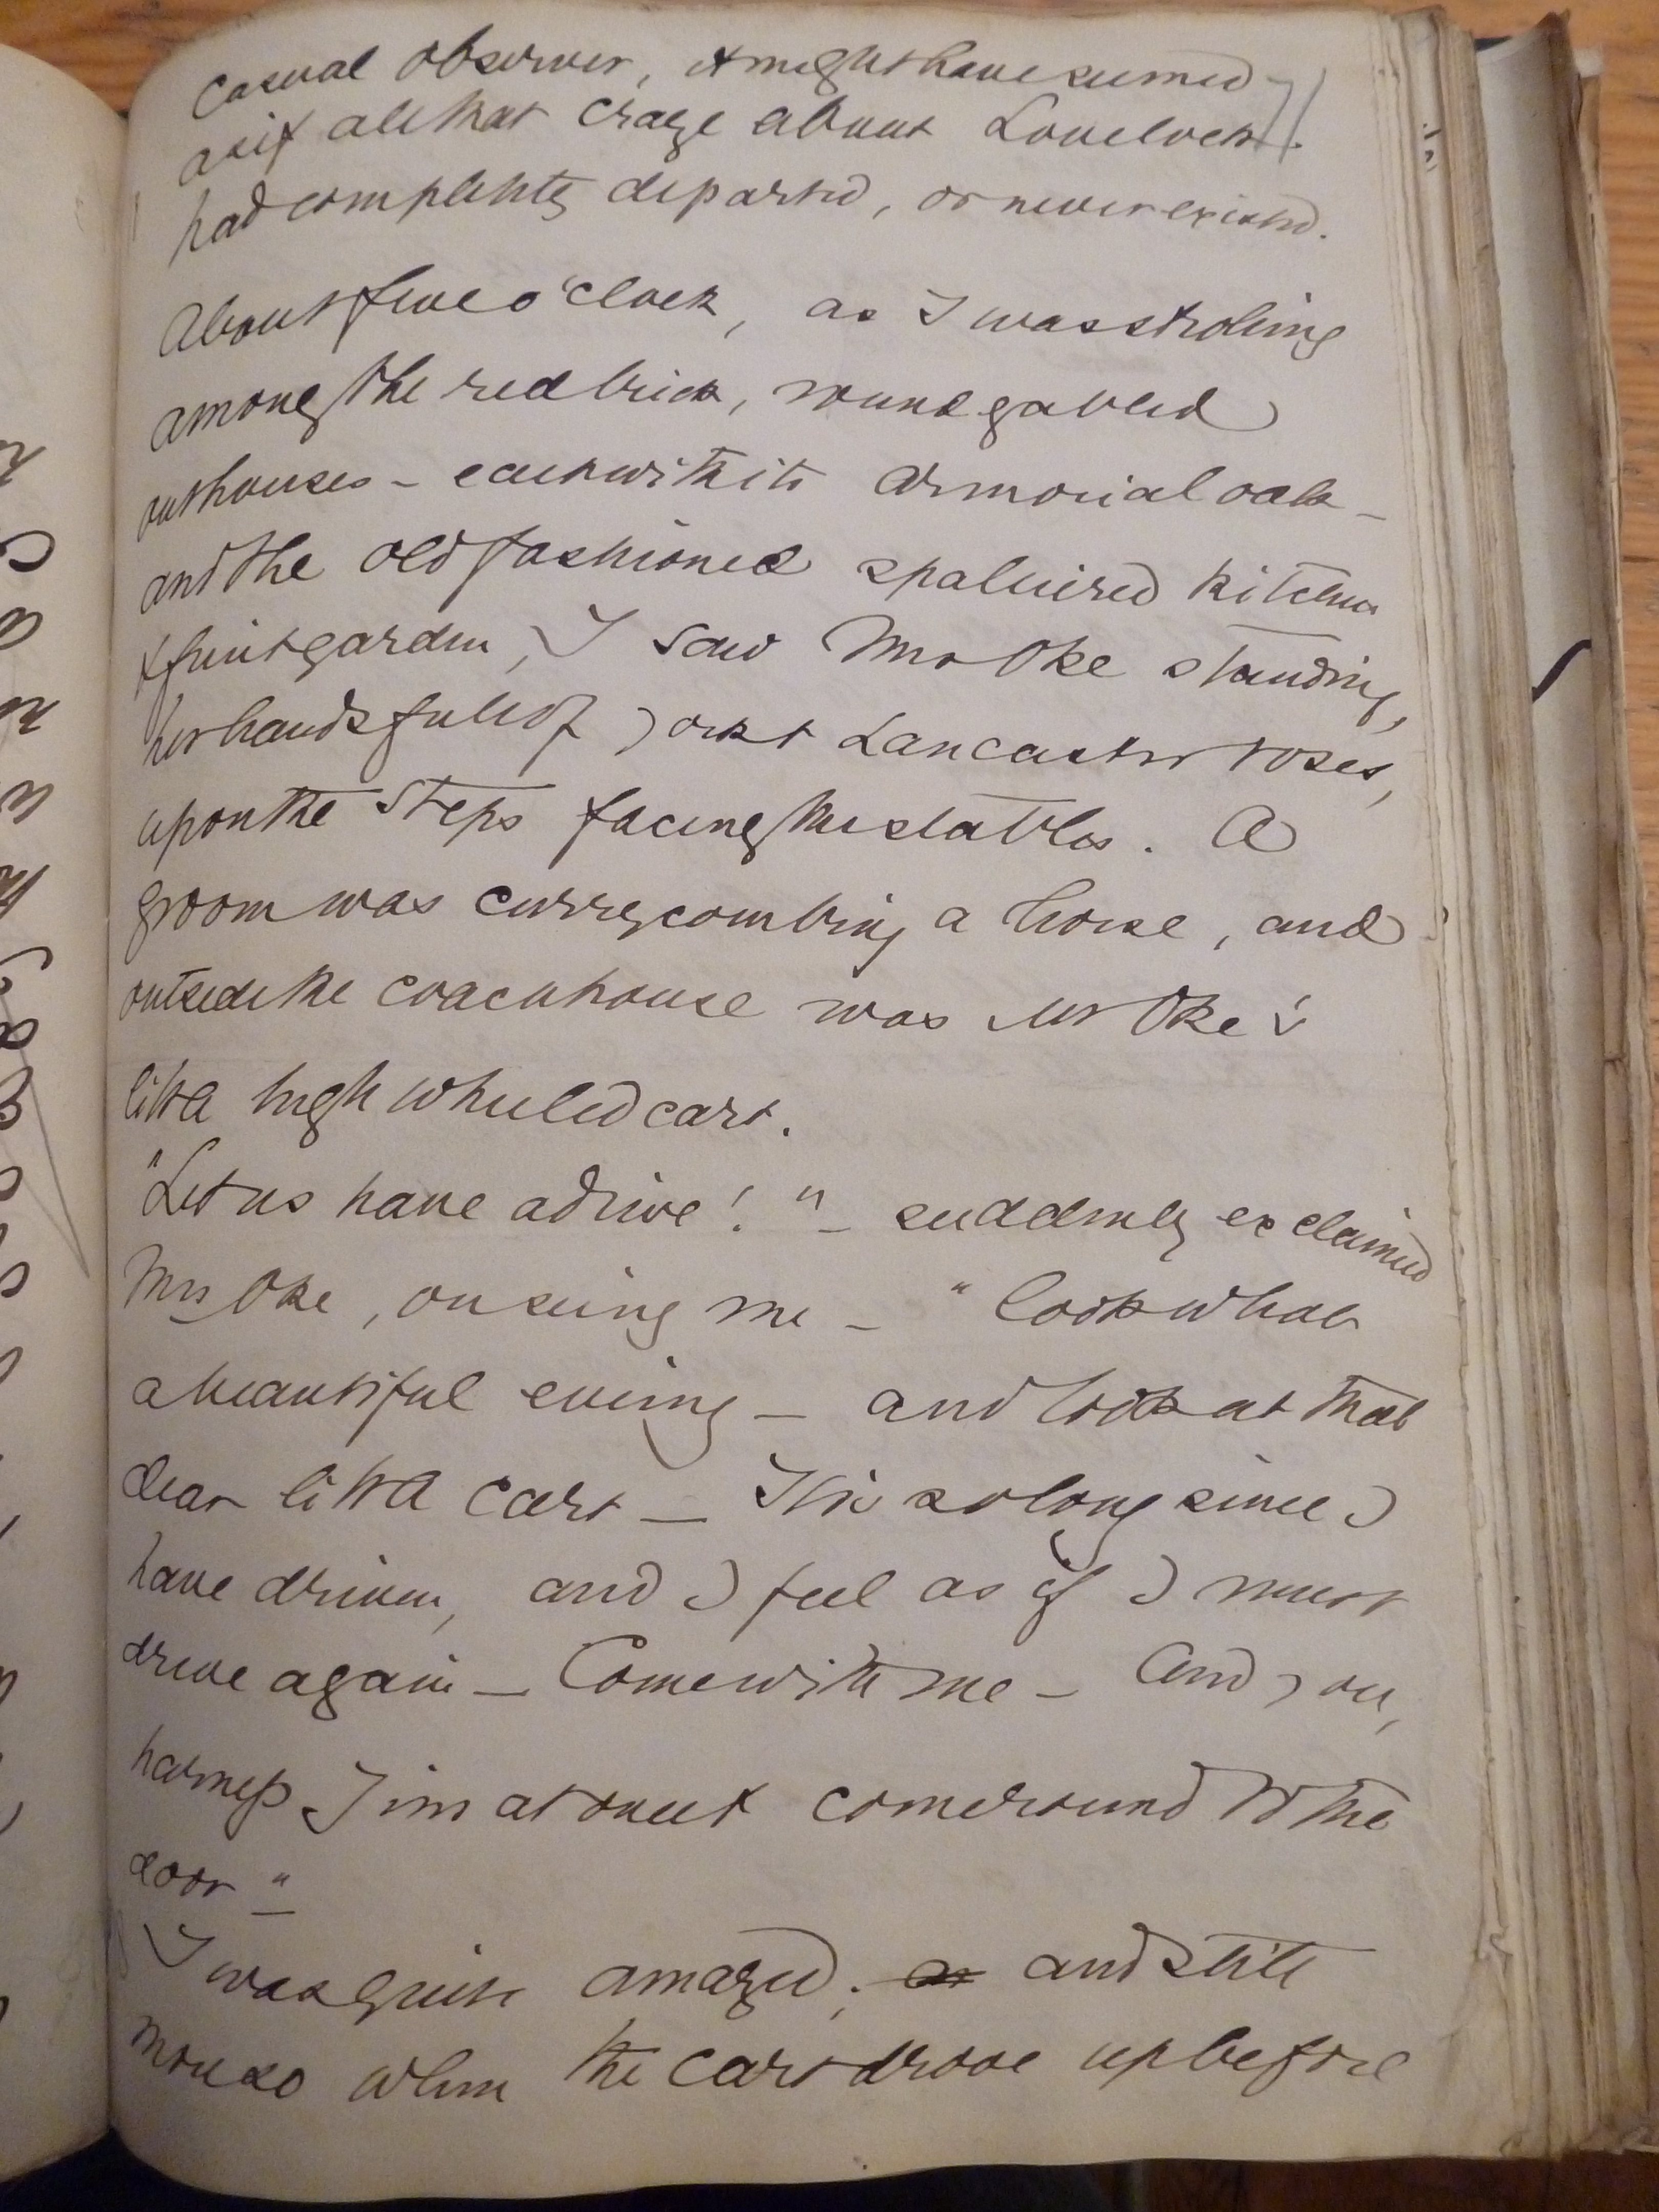 casual observer, it might have seemed
as if all that craze about Lovelock
had completely departed, or never existed.
About five o'clock, as I was stroling
among the red brick, round gabled
outhouses – each with its armorial oak –
and the old fashioned spaliered kitchen
& fruit garden, I saw Mrs Oke standing,
her hands full of York & Lancaster roses,
upon the steps facing the stables. A
groom was currycombing a horse, and
outside the coachhouse was Mr Oke's
little high wheeled cart.
"Let us have a drive!" – suddenly exclaimed
Mrs Oke, on seing me – "look what
a beautiful evening – and look at that
dear little cart – It is so long since I
have driven, and I feel as if I must
drive again – Come with me – And you,
harness Jim at once & come round to the
door"
I was quite amazed; and still
more so when the cart drove up before